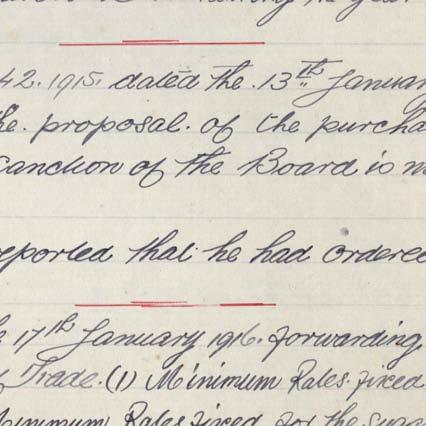 42. 1915. dated the 13th January
the. proposal. of the purcha
sanction of the Board is n
reported that he had ordered
17th January 1916. forwarding
Trade. (1) Minimum Rates. fixed
Minimum Rates fixed for the